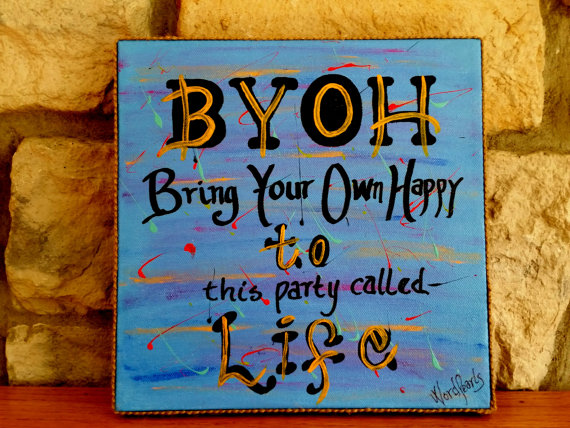 BYOH
Bring Your Own Happy
to
this party called-
Life
WordPearls